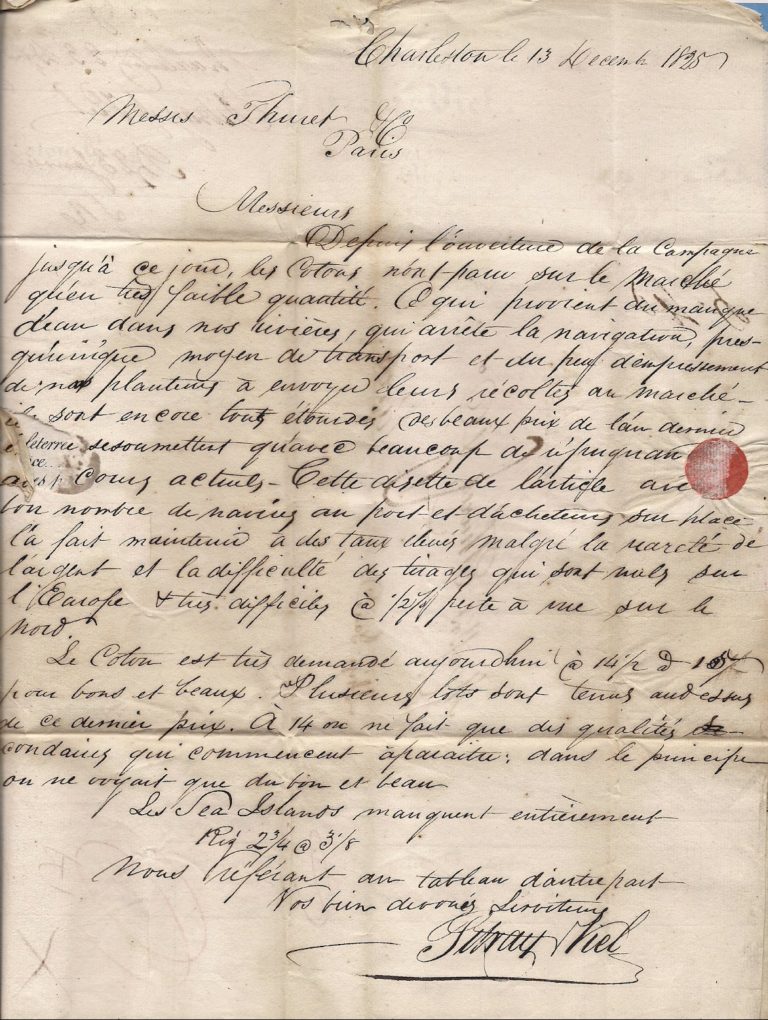 Charleston le 13 Decemb 1825
Messrs Thuret & Co
Paris
Messieurs
Depuis l'ouverture de la Campagne
jusqu'à ce jour, les Cotons n'ont paru sur le Marché
qu'en très faible quantité. Ce qui provient du manque
d'eau dans nos rivières, qui arrête la navigation, pres-
qu'unique moyen de transport et du peu d'empressement
de nos planteurs à envoyer leurs récoltes au marché -
ils sont encore tout étourdis des beaux prix de l'an dernier
se soumettent qu'avec beaucoup de répugnan
aux Cours actuels - Cette disette de l'article avec
bon nombre de navires au port et d'acheteurs sur place
l'a fait maintenir à des taux élevés malgré la rareté de
l'argent et la difficulté des tirages qui sont nuls sur
l'Europe & très difficiles @ 1/2 % perte à vue sur le
Nord.
Le Coton est très demandé aujourdhui @ 14 1/2 @ 15
pour bons et beaux. Plusieurs lots sont tenus audessus
de ce dernier prix. À 14 on ne fait que des qualités se-
condaires qui commencent à paraitre; dans le principe
on ne voyait que du bon et beau
Les Sea Islands manquent entièrement
Riz 2 3/4 @ 3 1/8
Nous référant au tableau d'autre part
Vos bien dévoués Serviteurs